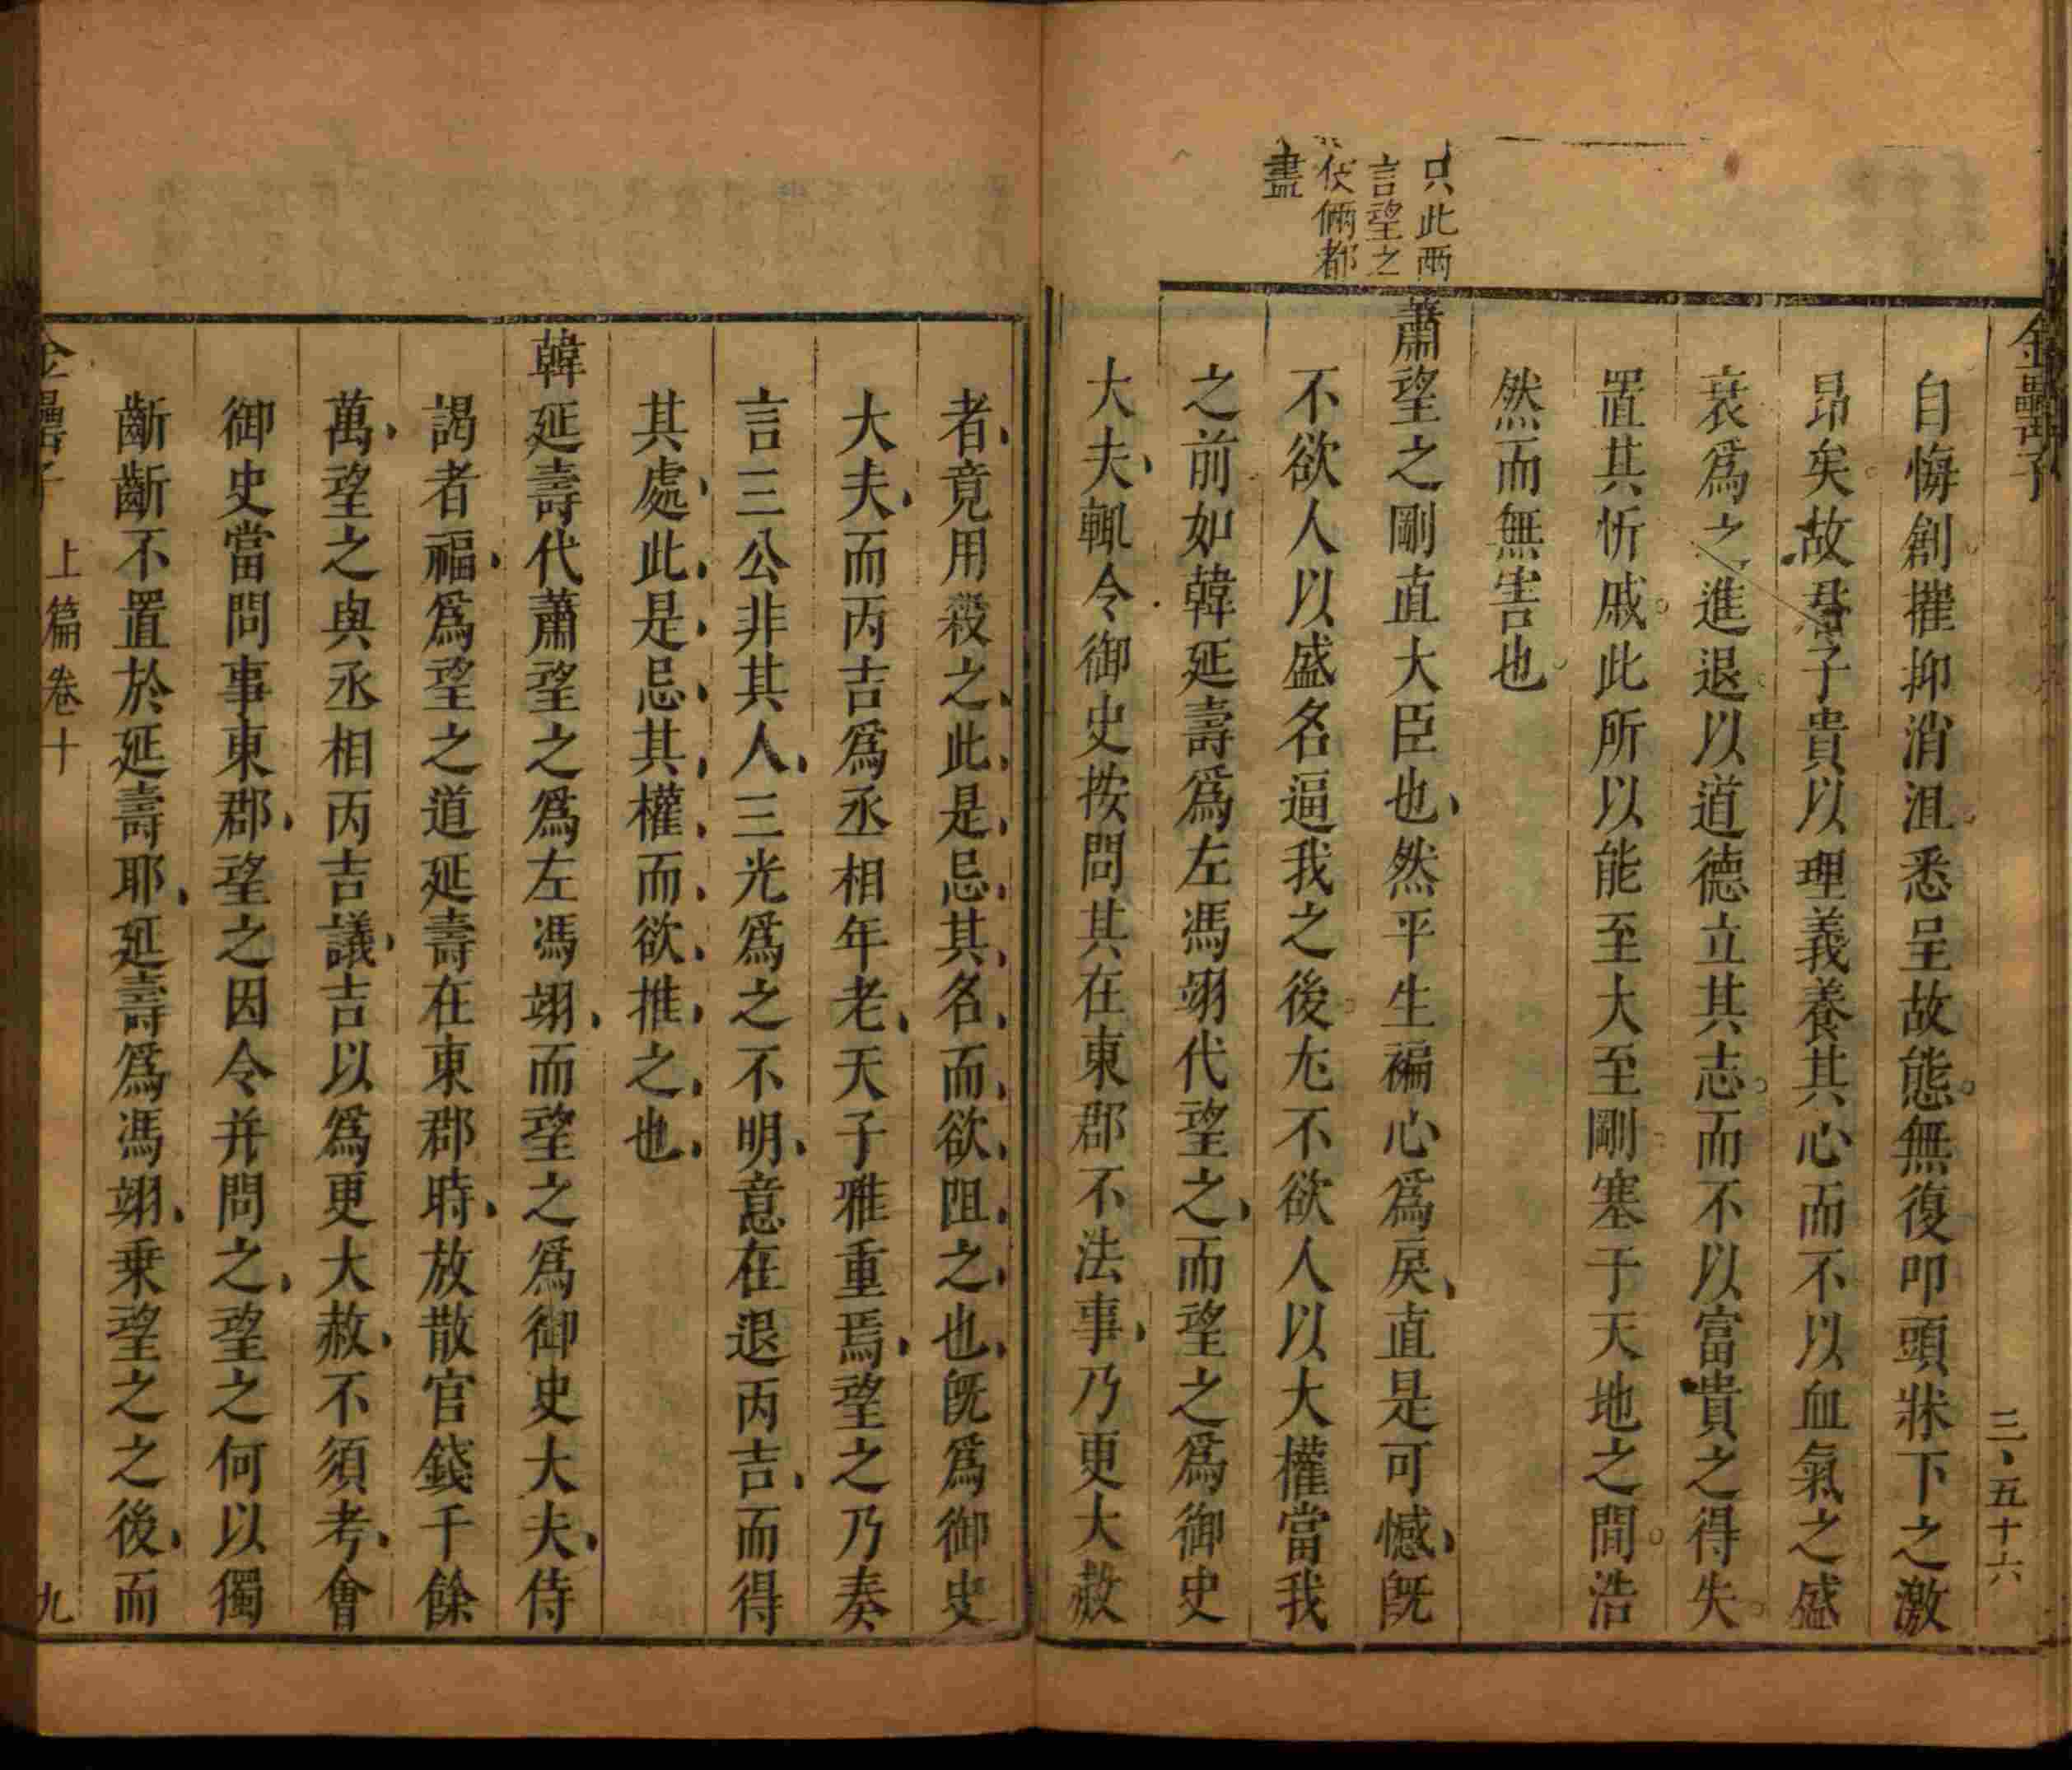 金罍子
三、五十六
自悔創摧抑消沮悉呈故態無復叩頭牀下之激
昂矣故君子貴以理義養其心而不以血氣之盛
衰爲之進退以道德立其志而不以富貴之得失
置其忻戚此所以能至大至剛塞于天地之間浩
然而無害也
只此兩
言望之
伎倆都
盡
蕭望之剛直大臣也然平生褊心爲戾直是可憾旣
不欲人以盛名逼我之後尢不欲人以大權當我
之前如韓延壽爲左馮翊代望之而望之爲御史
大夫輒令御史按問其在東郡不法事乃更大赦
者竟用殺之此是忌其名而欲阻之也旣爲御史
大夫而丙吉爲丞相年老天子雅重焉望之乃奏
言三公非其人三光爲之不明意在退丙吉而得
其處此是忌其權而欲推之也
韓延壽代蕭望之爲左馮翊而望之爲御史大夫侍
謁者福爲望之道延壽在東郡時放散官錢千餘
萬望之與丞相丙吉議吉以爲更大赦不須考會
御史當問事東郡望之因令并問之望之何以獨
齗齗不置於延壽耶延壽爲馮翊乗望之之後而
金罍子
上篇卷十
九